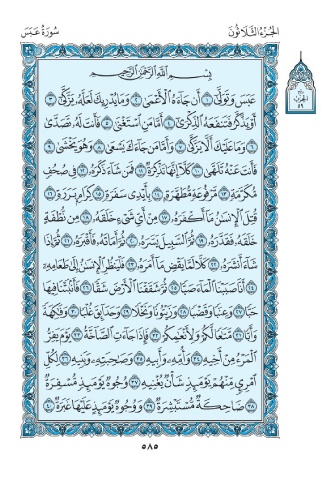 الجُزْءُ الثَّلَاثُونَ سُورَةُ عَبَسَ
بِسْمِ اللَّهِ الرَّحْمَٰنِ الرَّحِيمِ
عَبَسَ وَتَوَلَّىٰٓ ١ أَن جَآءَهُ ٱلْأَعْمَىٰ ٢ وَمَا يُدْرِيكَ لَعَلَّهُۥ يَزَّكَّىٰٓ ٣
أَوْ يَذَّكَّرُ فَتَنفَعَهُ ٱلذِّكْرَىٰٓ ٤ أَمَّا مَنِ ٱسْتَغْنَىٰ ٥ فَأَنتَ لَهُۥ تَصَدَّىٰ
٦ وَمَا عَلَيْكَ أَلَّا يَزَّكَّىٰ ٧ وَأَمَّا مَن جَآءَكَ يَسْعَىٰ ٨ وَهُوَ يَخْشَىٰ ٩
فَأَنتَ عَنْهُ تَلَهَّىٰ ١٠ كَلَّآ إِنَّهَا تَذْكِرَةٌ ١١ فَمَن شَآءَ ذَكَرَهُۥ ١٢ فِى صُحُفٍ
مُّكَرَّمَةٍ ١٣ مَّرْفُوعَةٍ مُّطَهَّرَةٍۭ ١٤ بِأَيْدِى سَفَرَةٍ ١٥ كِرَامٍۭ بَرَرَةٍ ١٦
قُتِلَ ٱلْإِنسَٰنُ مَآ أَكْفَرَهُۥ ١٧ مِنْ أَىِّ شَىْءٍ خَلَقَهُۥ ١٨ مِن نُّطْفَةٍ
خَلَقَهُۥ فَقَدَّرَهُۥ ١٩ ثُمَّ ٱلسَّبِيلَ يَسَّرَهُۥ ٢٠ ثُمَّ أَمَاتَهُۥ فَأَقْبَرَهُۥ ٢١ ثُمَّ إِذَا
شَآءَ أَنشَرَهُۥ ٢٢ كَلَّا لَمَّا يَقْضِ مَآ أَمَرَهُۥ ٢٣ فَلْيَنظُرِ ٱلْإِنسَٰنُ إِلَىٰ طَعَامِهِۦٓ
٢٤ أَنَّا صَبَبْنَا ٱلْمَآءَ صَبًّا ٢٥ ثُمَّ شَقَقْنَا ٱلْأَرْضَ شَقًّا ٢٦ فَأَنۢبَتْنَا فِيهَا
حَبًّا ٢٧ وَعِنَبًا وَقَضْبًا ٢٨ وَزَيْتُونًا وَنَخْلًا ٢٩ وَحَدَآئِقَ غُلْبًا ٣٠ وَفَٰكِهَةً
وَأَبًّا ٣١ مَّتَٰعًا لَّكُمْ وَلِأَنْعَٰمِكُمْ ٣٢ فَإِذَا جَآءَتِ ٱلصَّآخَّةُ ٣٣ يَوْمَ يَفِرُّ
ٱلْمَرْءُ مِنْ أَخِيهِ ٣٤ وَأُمِّهِۦ وَأَبِيهِ ٣٥ وَصَٰحِبَتِهِۦ وَبَنِيهِ ٣٦ لِكُلِّ
ٱمْرِئٍ مِّنْهُمْ يَوْمَئِذٍ شَأْنٌ يُغْنِيهِ ٣٧ وُجُوهٌ يَوْمَئِذٍ مُّسْفِرَةٌ
٣٨ ضَاحِكَةٌ مُّسْتَبْشِرَةٌ ٣٩ وَوُجُوهٌ يَوْمَئِذٍ عَلَيْهَا غَبَرَةٌ ٤٠
الحزب
٥٩
٥٨٥